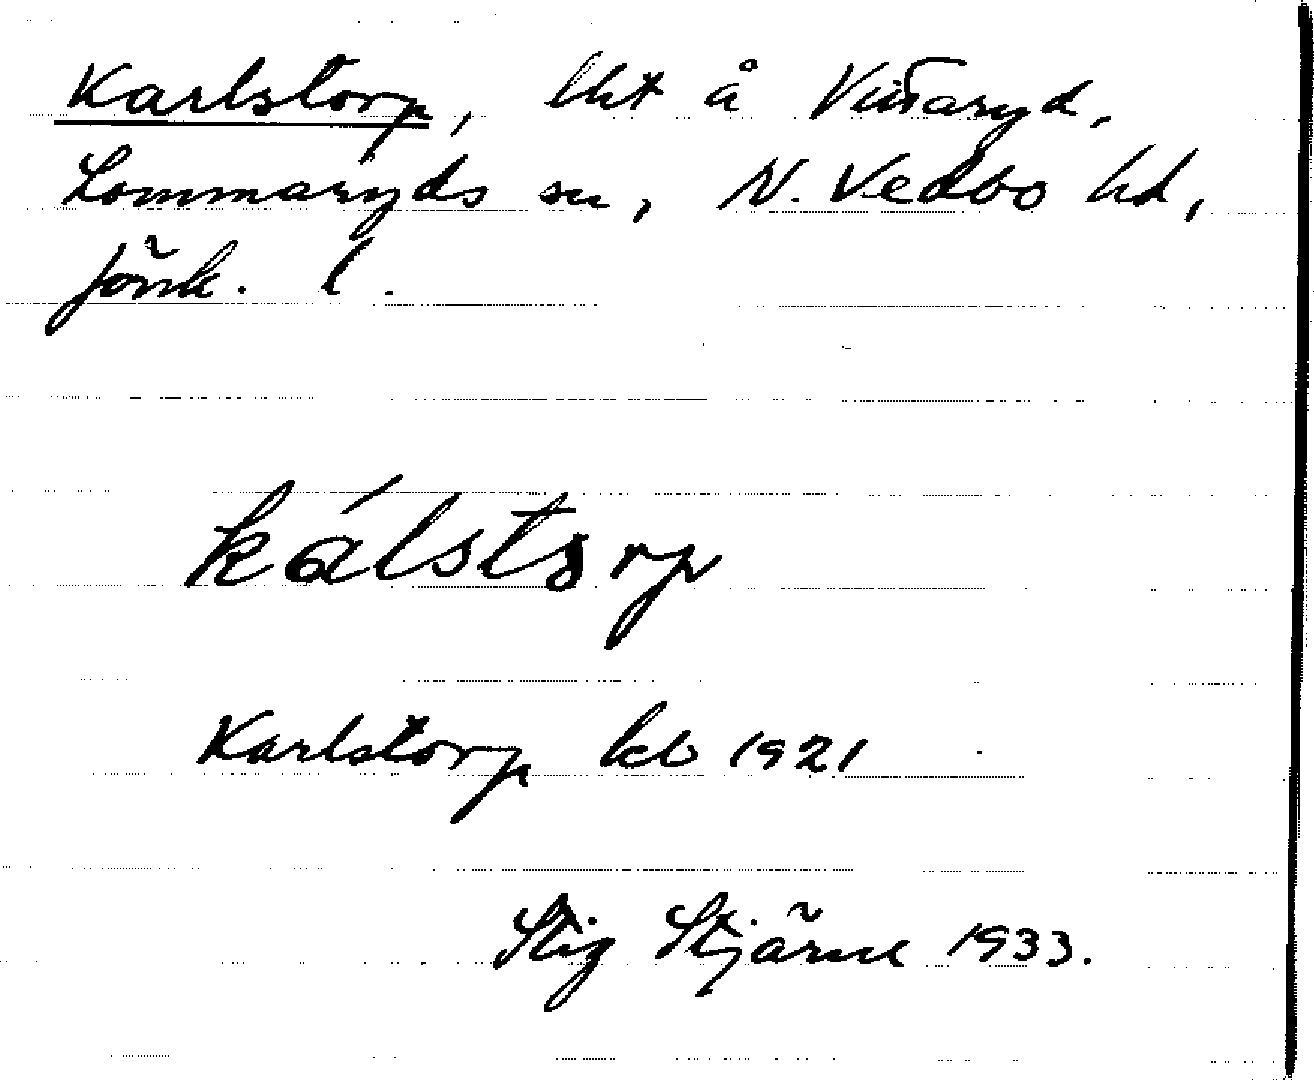 Karlstorp, lht å Vittaryd,
Lommaryds sn, N. Vedbo hd,
Jönk. l.
kálstorp
Karlstorp kb 1921
Stig Stjärne 1933.